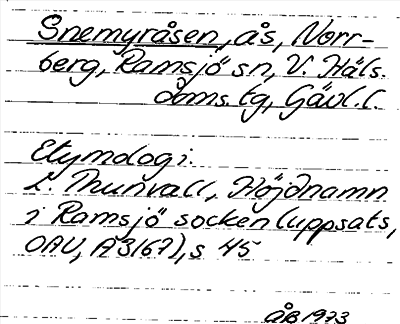 Snemyråsen, ås, Norr-
berg, Ramsjö sn, V. Häls.
doms. tg, Gävl. l.
Etymologi.
L. Thunvall, Höjdnamn
i Ramsjö socken (uppsats,
OAU, A3167), s 45
ÅB 1973